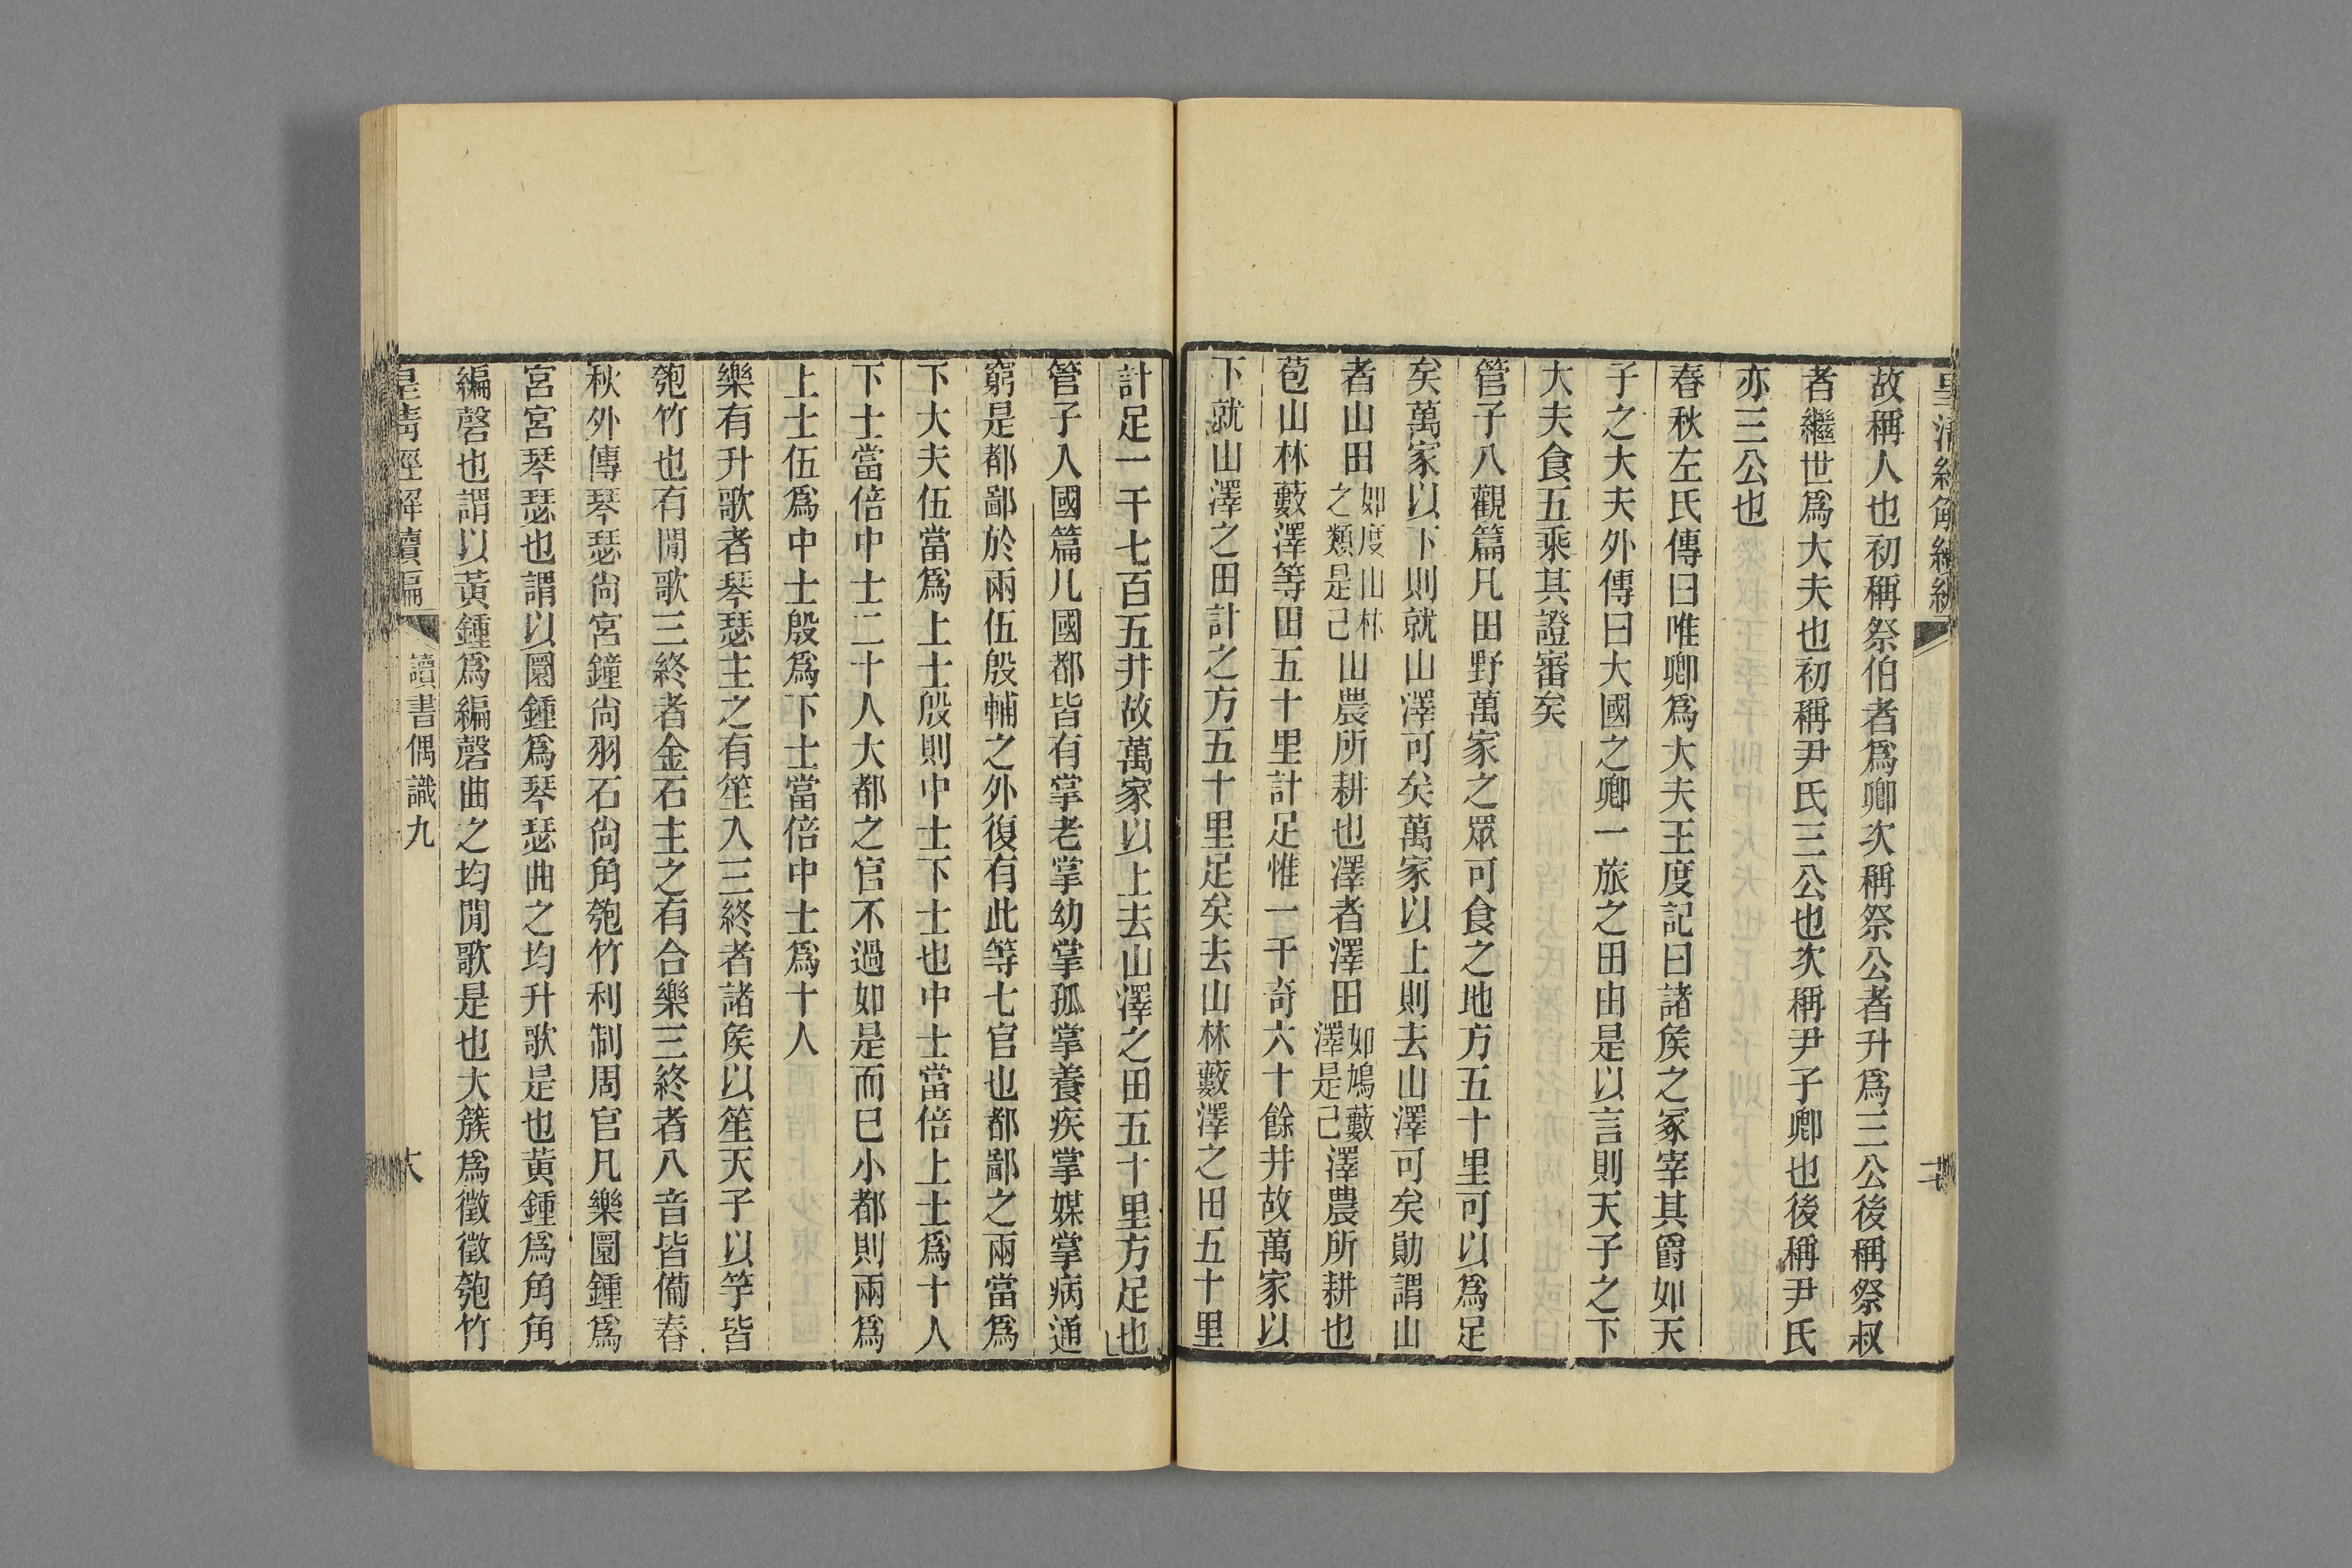 故稱人也初稱祭伯者爲卿次稱祭公者升爲三公後稱祭叔
者繼世爲大夫也初稱尹氏三公也次稱尹子卿也後稱尹氏
亦三公也
春秋左氏傳曰唯卿爲大夫王度記曰諸矦之冢宰其爵如天
子之大夫外傳曰大國之卿一旅之田由是以言則天子之下
大夫食五乘其證審矣
管子八觀篇凡田野萬家之眾可食之地方五十里可以爲足
矣萬家以下則就山澤可矣萬家以上則去山澤可矣勛謂山
者山田如度山林之類是己山農所耕也澤者澤田如鳩藪澤是己澤農所耕也
苞山林藪澤等田五十里計足惟一千奇六十餘井故萬家以
下就山澤之田計之方五十里足矣去山林藪澤之田五十里
計足一千七百五井故萬家以上去山澤之田五十里方足也
管子入國篇凡國都皆有掌老掌幼掌孤掌養疾掌媒掌病通
窮是都鄙於兩伍殷輔之外復有此等七官也都鄙之兩當爲
下大夫伍當爲上士殷則中士下士也中士當倍上士爲十人
下士當倍中士二十人大都之官不過如是而巳小都則兩爲
上士伍爲中士殷爲下士當倍中士爲十人
樂有升歌者琴瑟主之有笙入三終者諸矦以笙天子以竽皆
匏竹也有閒歌三終者金石主之有合樂三終者八音皆僃春
秋外傳琴瑟尙宮鐘尙羽石尙角匏竹利制周官凡樂圜鍾爲
宮宮琴瑟也謂以圜鍾爲琴瑟曲之均升歌是也黄鍾爲角角
編磬也謂以黃鍾爲編磬曲之均閒歌是也大簇爲徵徵匏竹
皇淸經解續編
讀書偶識九